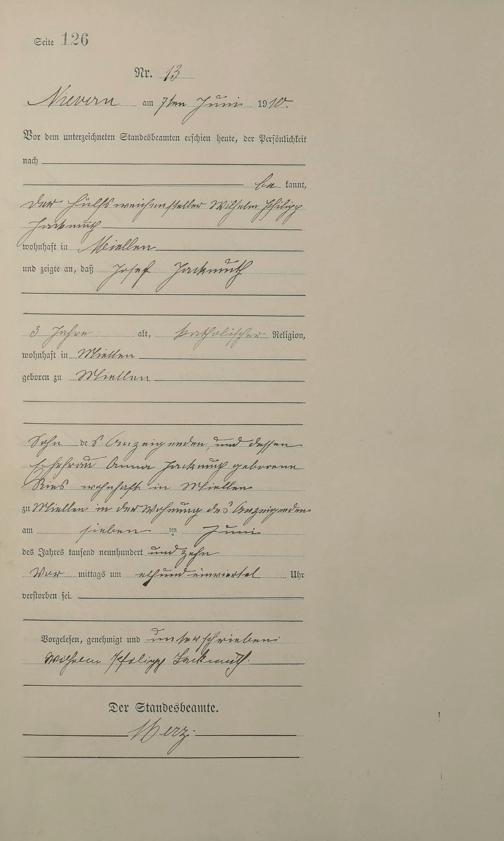 Seite 126
Nr. 13
Nievern am 7ten Juni 1910.
Vor dem unterzeichneten Standesbeamten erschien heute, der Persönlichkeit
nach
be kannt,
der Hülfsweichensteller Wilhelm Philipp
Jackmuth
wohnhaft in Miellen
und zeigte an, daß Josef Jackmuth
3 Jahre alt, katholischer Religion,
wohnhaft in Miellen
geboren zu Miellen
Sohn des Anzeigenden und dessen
Ehefrau Anna Jackmuth geborene
Ries wohnhaft in Miellen
zu Miellen in der Wohnung des Anzeigenden
am sieben ten Juni
des Jahres tausend neunhundert und zehn
Vor mittags um elf und einviertel Uhr
verstorben sei.
Vorgelesen, genehmigt und unterschrieben
Wilhelm Philipp Jackmuth
Der Standesbeamte.
Merz.